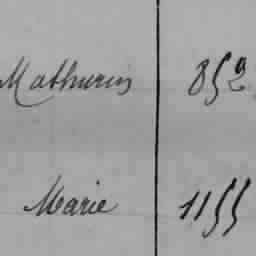 Mathurin 852
Marie 1155